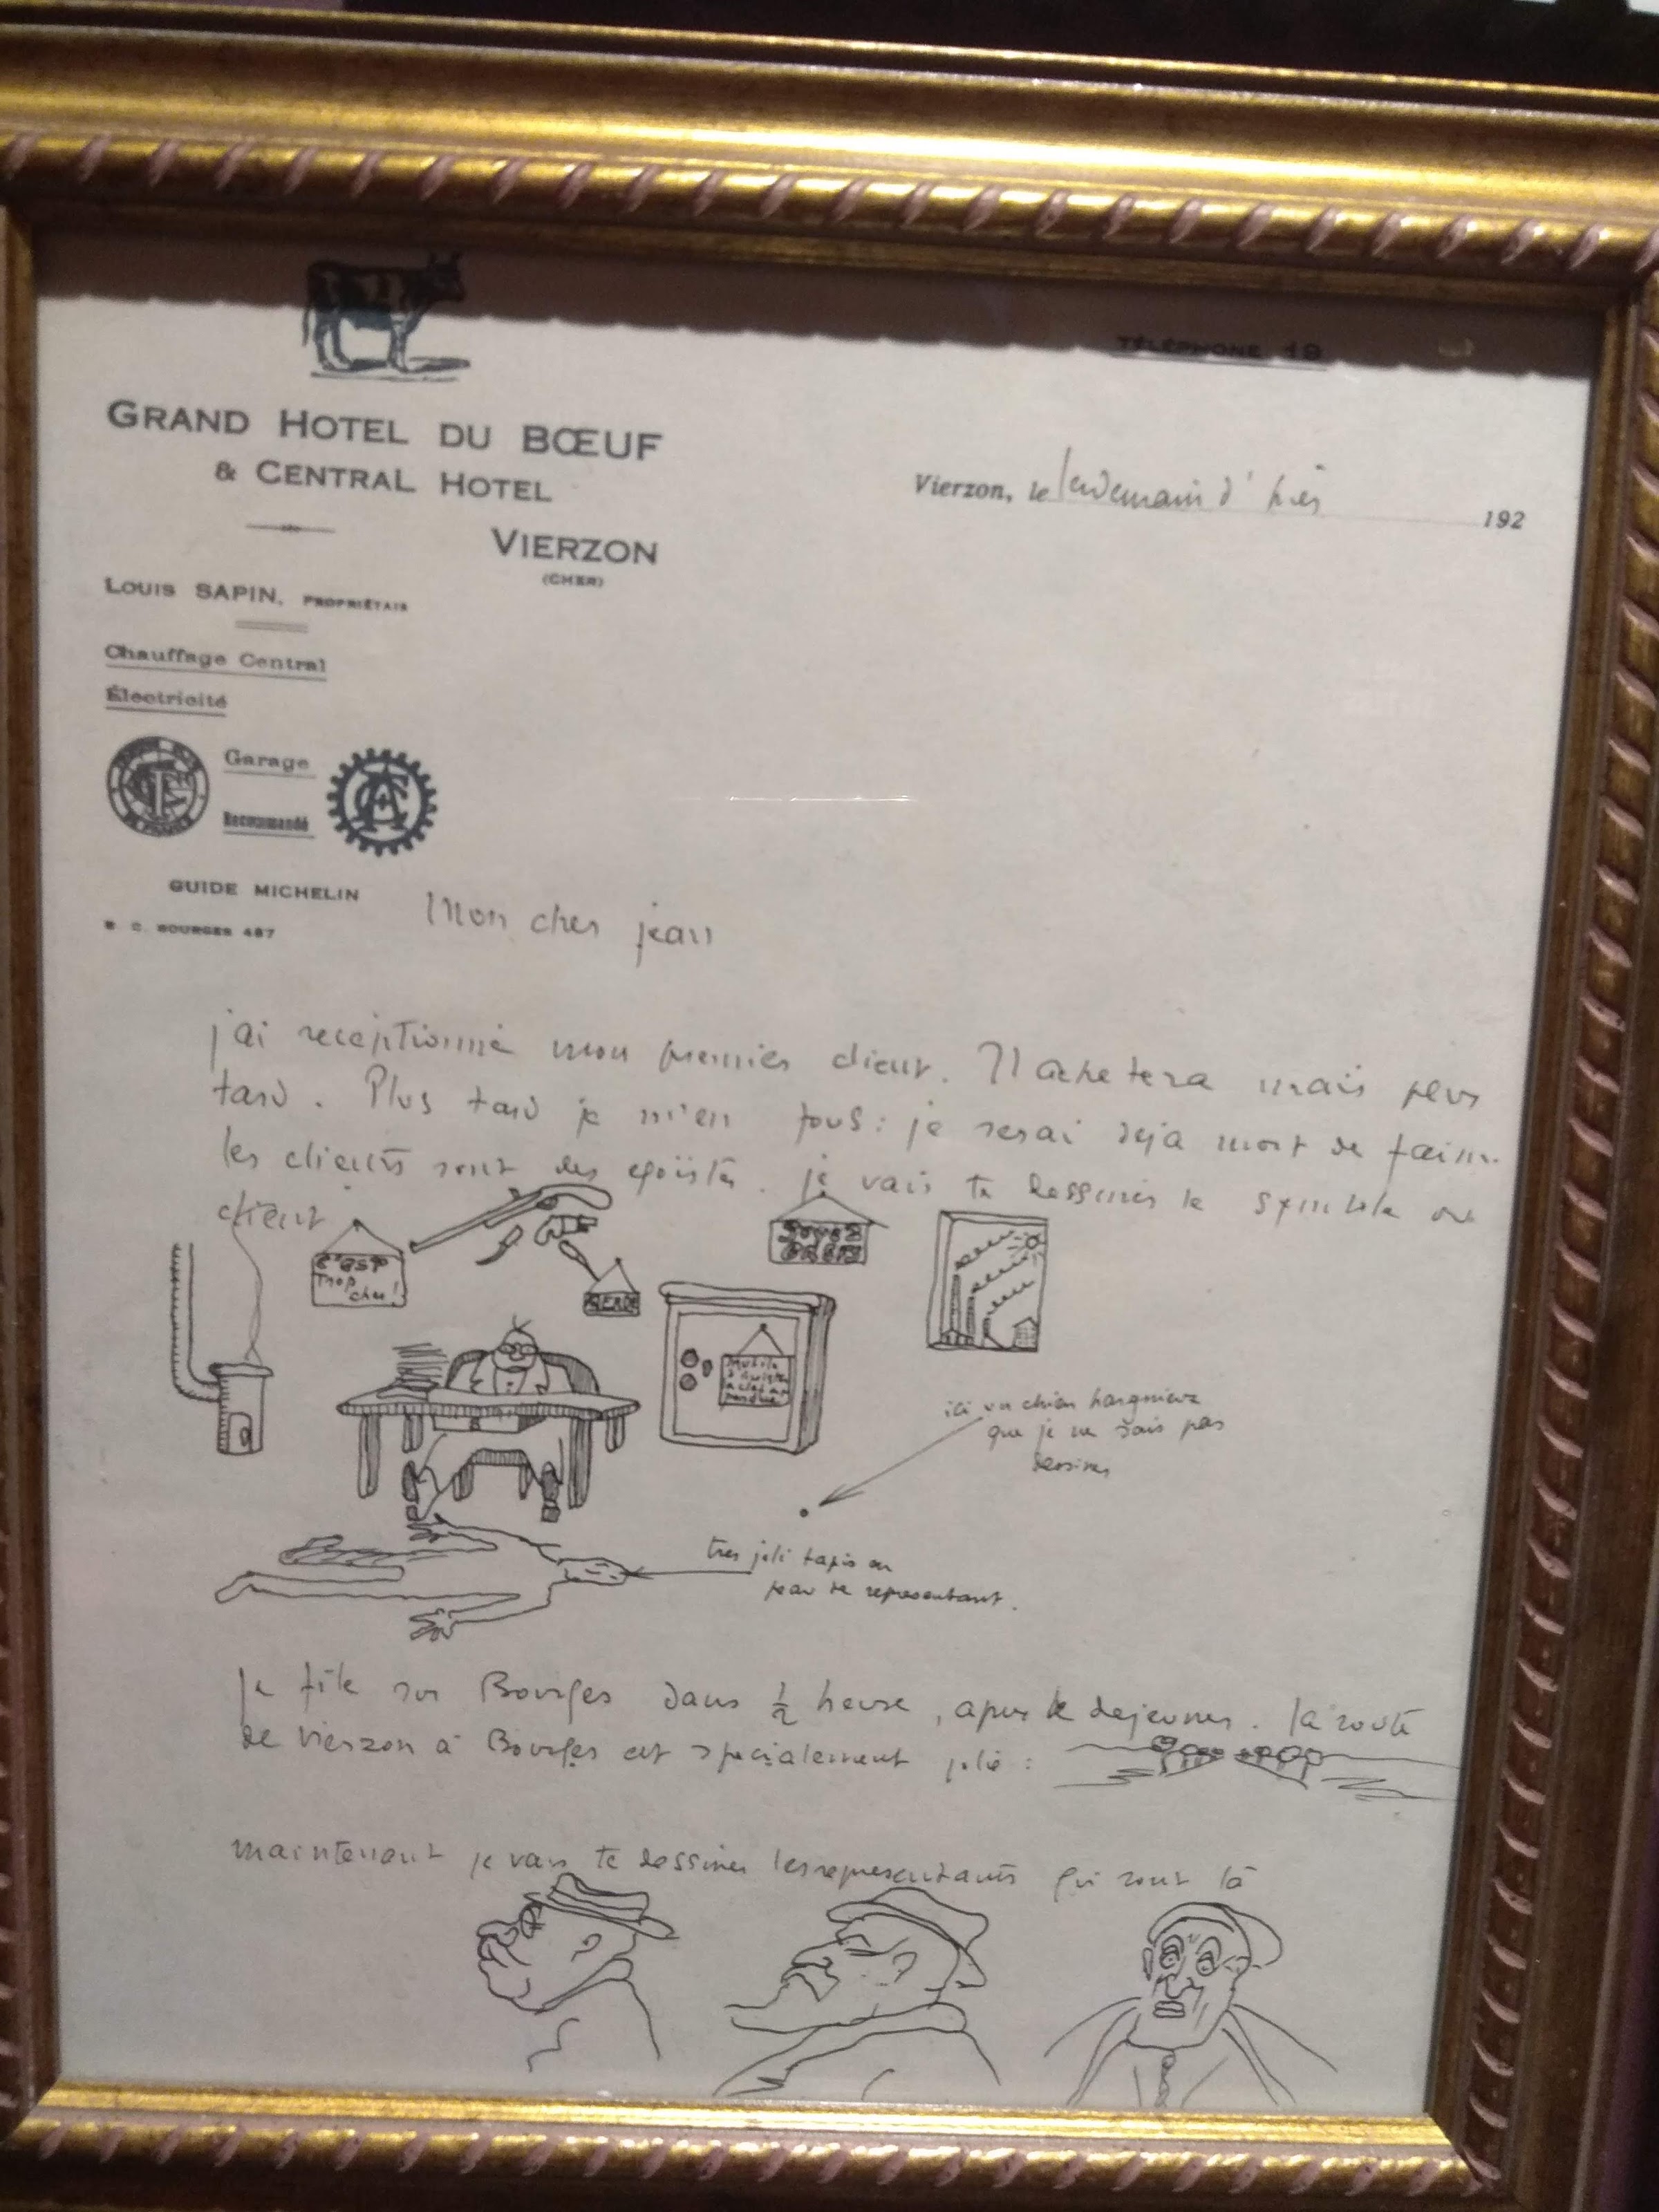 TÉLÉPHONE 19
GRAND HOTEL DU BŒUF
& CENTRAL HOTEL
VIERZON
(CHER)
Vierzon, le lendemain d'hier 192
LOUIS SAPIN, PROPRIÉTAIR
Chauffage Central
Électricité
Garage
Recommandé
GUIDE MICHELIN
R. C. BOURGES 487
Mon cher jean
j'ai receptionné mon premier client. Il achetera mais plus
tard. Plus tard je m'en fous : je serai deja mort de faim.
les clients sont des egoïstes. je vais te dessiner le symbole du
client
c'est
trop
cher!
MERDE
Soyez
BREFS
Inutile
d'insister
la clef est
perdue
ici un chien hargneux
que je ne sais pas
dessiner
tres joli tapis en
peau de representant.
je file sur Bourges dans ½ heure, apres le dejeuner. la route
de vierzon à Bourges est specialement jolie :
maintenant je vais te dessiner les representants qui sont là